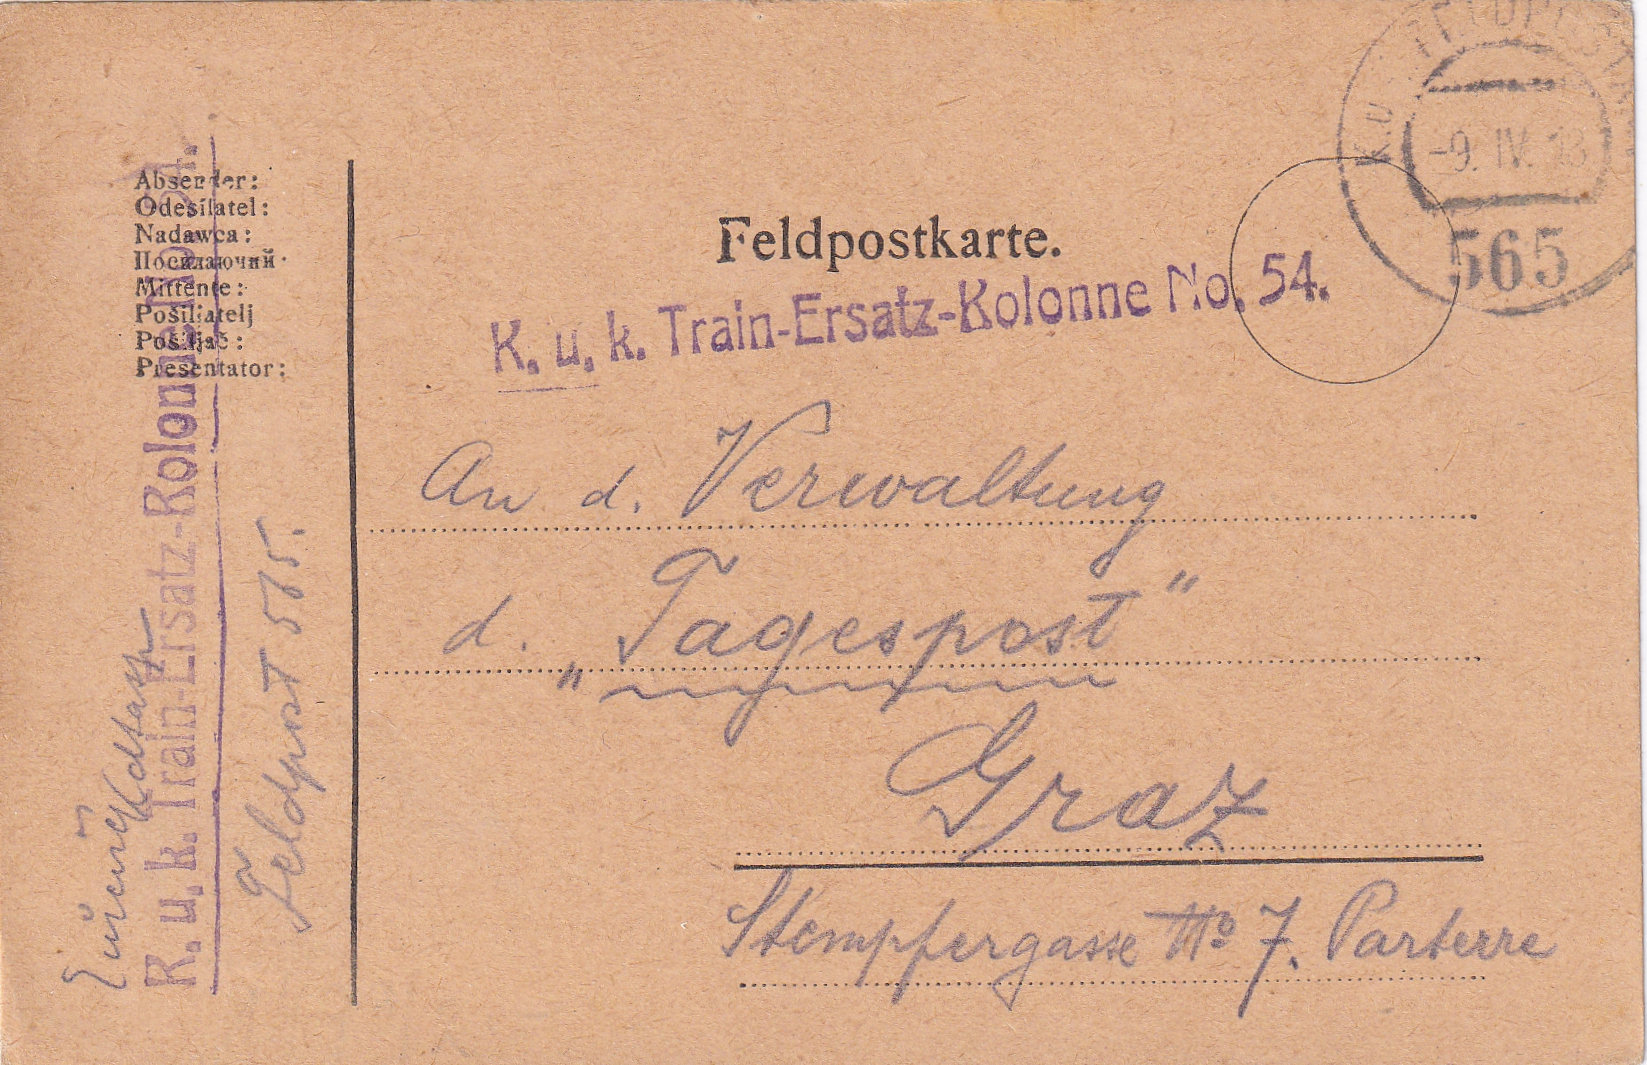 K. u. K. FELDPOSTAMT
-9. IV. 18
565
Feldpostkarte.
K. u. k. Train-Ersatz-Kolonne No. 54.
Absender:
Odesílatel:
Nadawca:
Посилаючий·
Mittente:
Pošiljatelj
Pošiljač:
Presentator:
K. u. k. Train-Ersatz-Kolonne No. 54.
Feldpost 565.
An d. Verwaltung
d. „Tagespost"
Graz
Stempfergasse No 7. Parterre